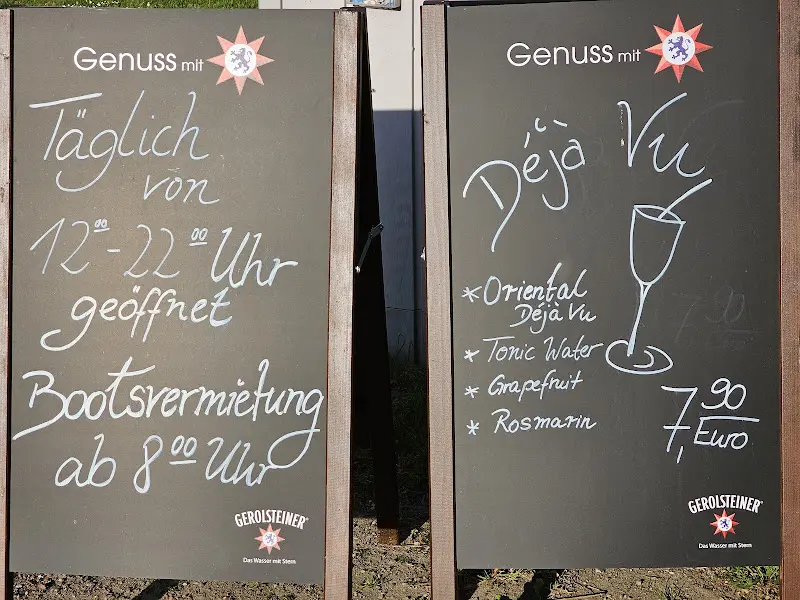 Genuss mit
Täglich
von
12⁰⁰-22⁰⁰ Uhr
geöffnet
Bootsvermietung
ab 8⁰⁰ Uhr
GEROLSTEINER®
Das Wasser mit Stern
Genuss mit
Déjà Vu
* Oriental
Déjà Vu
* Tonic Water
* Grapefruit
* Rosmarin
7,90
Euro
GEROLSTEINER®
Das Wasser mit Stern